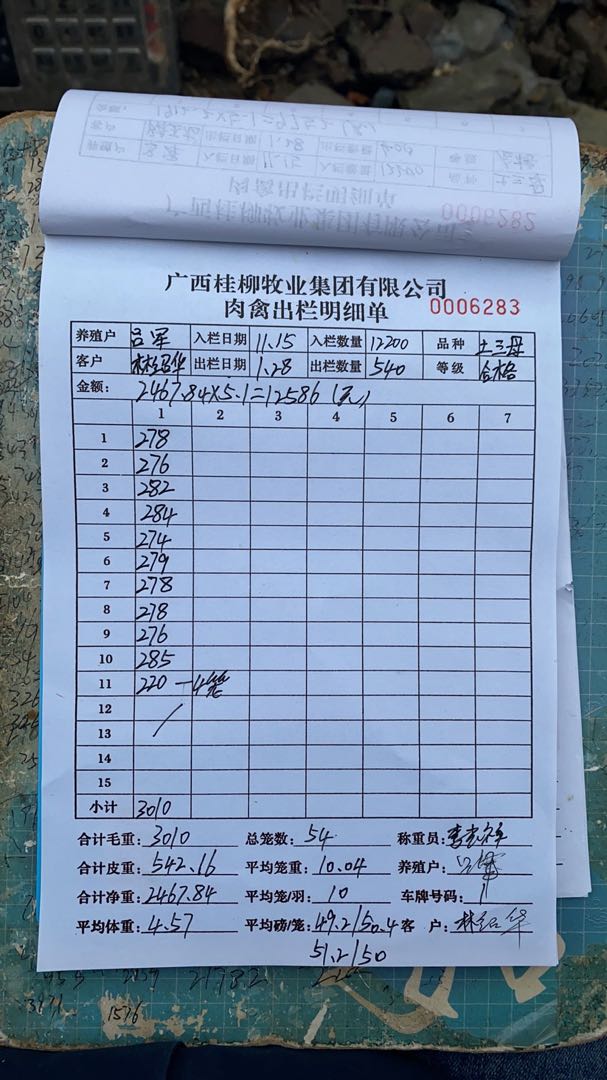 广西桂柳牧业集团有限公司
肉禽出栏明细单 0006282
广西桂柳牧业集团有限公司
肉禽出栏明细单 0006283
养殖户 吕军 入栏日期 11.15 入栏数量 12200 品种 土三母
客户 林绍华 出栏日期 1.28 出栏数量 540 等级 合格
金额: 2467.84×5.1=12586(元)
1 2 3 4 5 6 7
1 278
2 276
3 282
4 284
5 274
6 279
7 278
8 278
9 276
10 285
11 220 — 4笼
12
13
14
15
小计 3010
合计毛重: 3010 总笼数: 54 称重员:
合计皮重: 542.16 平均笼重: 10.04 养殖户:
合计净重: 2467.84 平均笼/羽: 10 车牌号码:
平均体重: 4.57 平均磅/笼: 49.2/50.4 客 户: 林绍华
51.2/50
1576